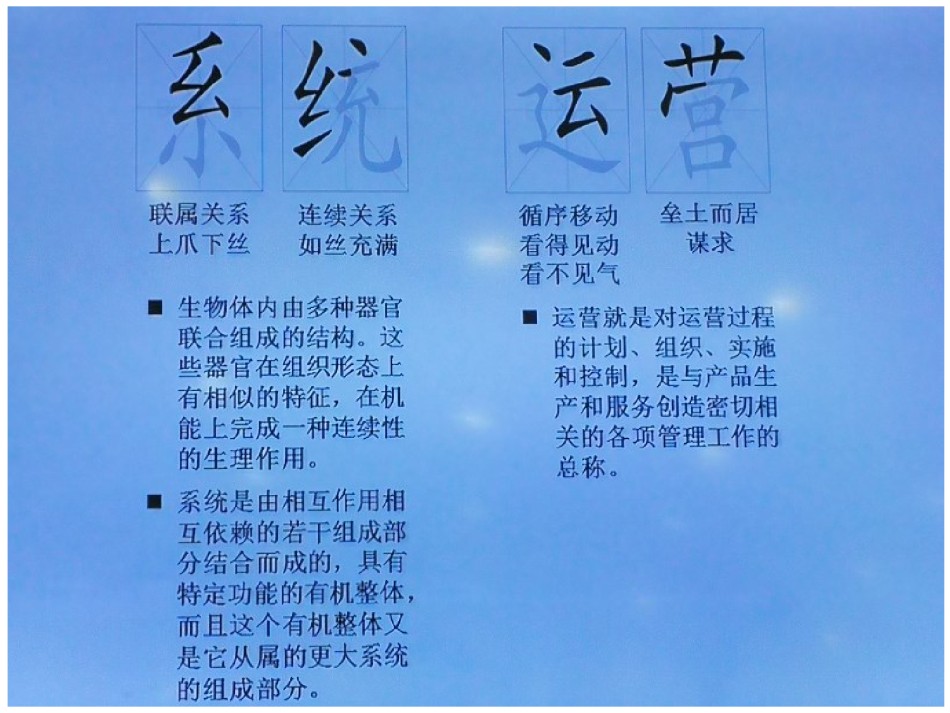 系统
运营
联属关系
上爪下丝
连续关系
如丝充满
循序移动
看得见动
看不见气
垒土而居
谋求
■ 生物体内由多种器官
联合组成的结构。这
些器官在组织形态上
有相似的特征，在机
能上完成一种连续性
的生理作用。
■ 系统是由相互作用相
互依赖的若干组成部
分结合而成的，具有
特定功能的有机整体，
而且这个有机整体又
是它从属的更大系统
的组成部分。
■ 运营就是对运营过程
的计划、组织、实施
和控制，是与产品生
产和服务创造密切相
关的各项管理工作的
总称。